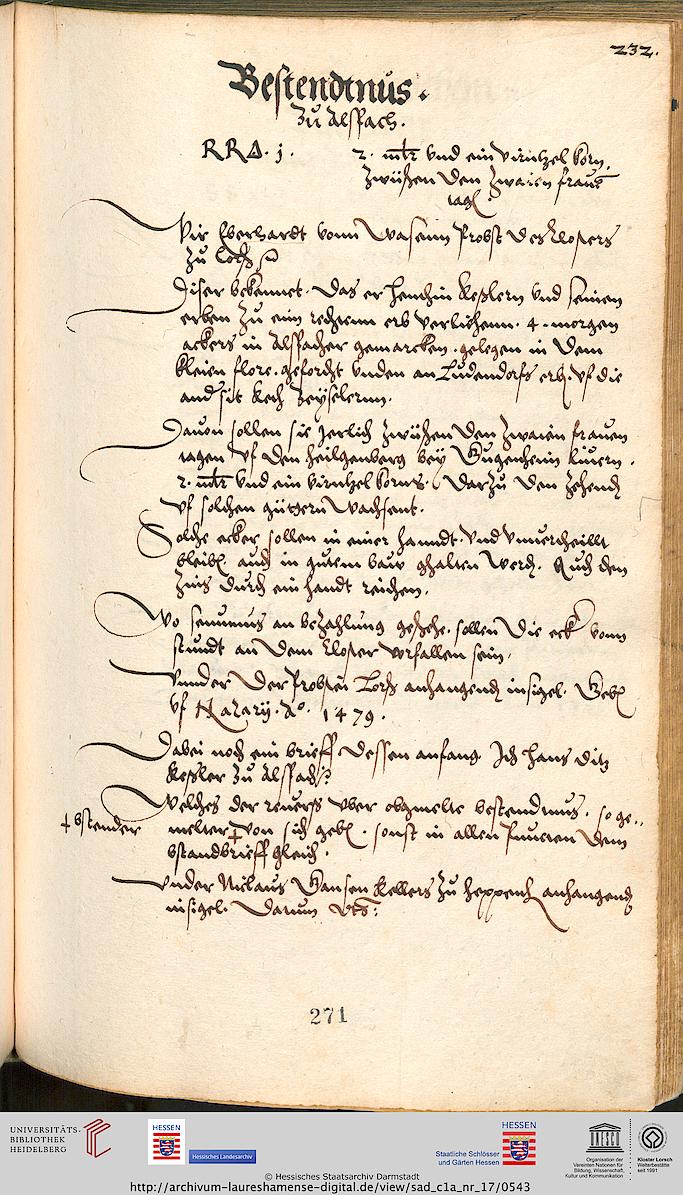 232.
Bestendtnus.
Zu Alspach.
RRA. j. 2. mltr vnd ein virntzel korn,
zwüschen den zwaien frauen
tagen
Wir Eberhardt vonn Wasenn Probst des Closters
zu Lorsch
Diser bekennet. Das er Henchin Keßlern vnd seinen
erben zu eim rechtenn erb verlichenn. 4. morgen
ackers in Alspacher gemarcken. gelegen in dem
kleien flore. geforcht vnden an Ludendorfs erb. vf die
ander sit Zeyselernn.
Dauon sollen sie Jerlich zwüschen den zwaien frauen
tagen vf den heilgenberg bey Gugenheim liuern.
2. mltr vnd ein virntzel korns. Darzu den zehend
vf solchen güttern wachsent.
Solche ecker sollen in einer handt. vnd vnuertheillt
bleiben. auch in gutem bauw ghalten werden. Auch den
zins durch ein handt reichen.
Wo seumnus an bezahlung geschehe. sollen die ecker vonn
stundt an dem Closter verfallen sein.
Vnnder der Probstei Lorsch anhangend insigel. Geben
vf Nazarij. Ao. 1479.
Dabei noch ein brieff dessen anfang Ich Hans Ditz
Keßler zu Alspach
Welches der reuerss vber obgmelte bestendtnus. so ge..
melter von sich geben. sonst in allen puncten dem
bstandbrieff gleich.
bstender
Vnder Niclaus Gansen Kellers zu Heppenh anhangend
insigel. Datum vts:
271
UNIVERSITÄTS-
BIBLIOTHEK
HEIDELBERG
HESSEN
Hessisches Landesarchiv
HESSEN
Staatliche Schlösser
und Gärten Hessen
UNESCO
Organisation der
Vereinten Nationen für
Bildung, Wissenschaft,
Kultur und Kommunikation
Kloster Lorsch
Welterbestätte
seit 1991
© Hessisches Staatsarchiv Darmstadt
http://archivum-laureshamense-digital.de/view/sad_c1a_nr_17/0543